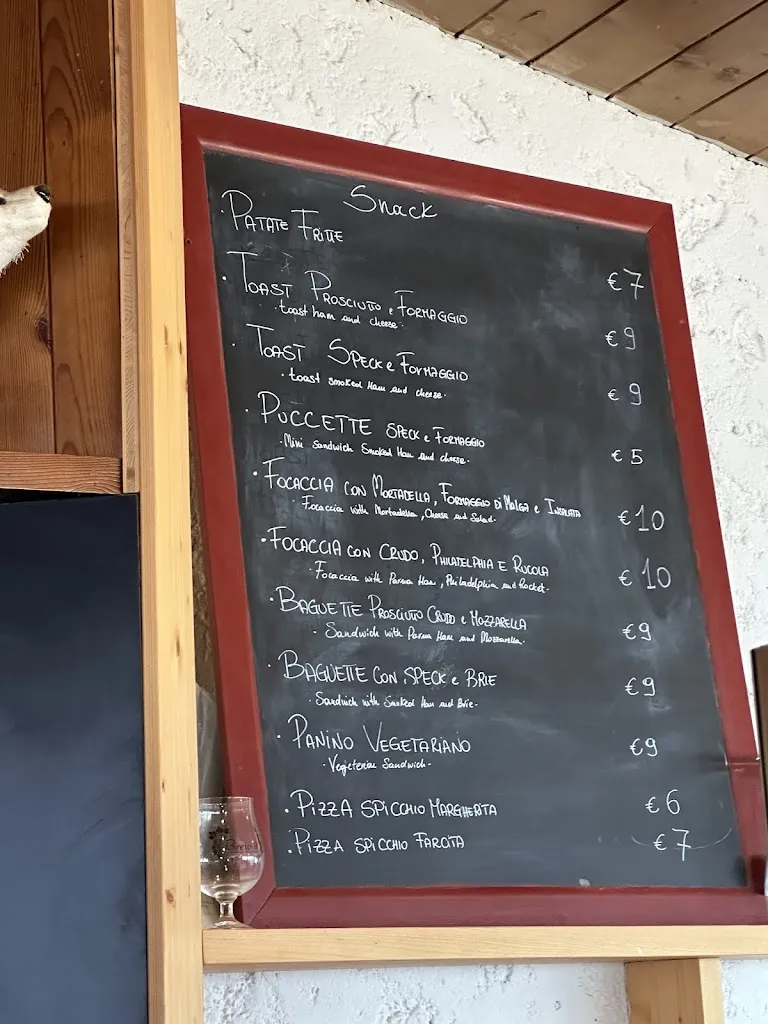 Snack
· PATATE FRITTE € 7
· TOAST PROSCIUTTO e FORMAGGIO € 9
· toast ham and cheese.
· TOAST SPECK e FORMAGGIO € 9
· toast smoked Ham and cheese.
· PUCCETTE SPECK e FORMAGGIO € 5
· Mini sandwich Smoked Ham and cheese.
· FOCACCIA CON MORTADELLA, FORMAGGIO DI MALGA e INSALATA € 10
· Focaccia with Mortadella, Cheese and Salad.
· FOCACCIA CON CRUDO, PHILADELPHIA E RUCOLA € 10
· Focaccia with Parma Ham, Philadelphia and Rocket.
· BAGUETTE PROSCIUTO CRUDO e MOZZARELLA € 9
· Sandwich with Parma Ham and Mozzarella.
· BAGUETTE CON SPECK e BRIE € 9
· Sandwich with Smoked Ham and Brie.
· PANINO VEGETARIANO € 9
· Vegeterian Sandwich.
· PIZZA SPICCHIO MARGHERITA € 6
· PIZZA SPICCHIO FARCITA € 7